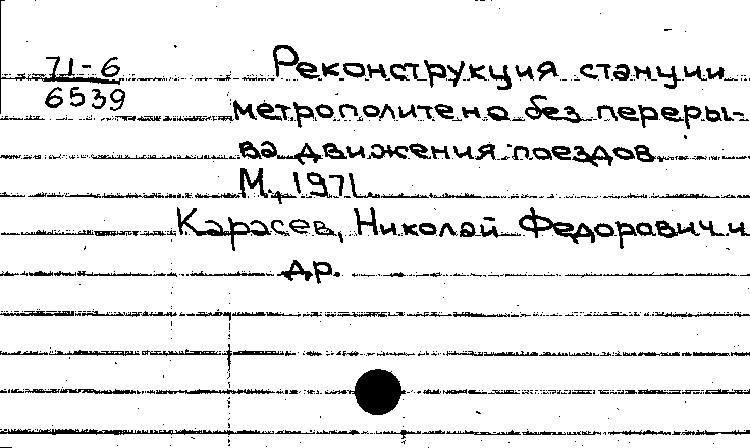 71-6
6539
Реконструкция станции
метрополитена без переры-
ва движения поездов.
М., 1971.
Карасев, Николай Федорович и
др.